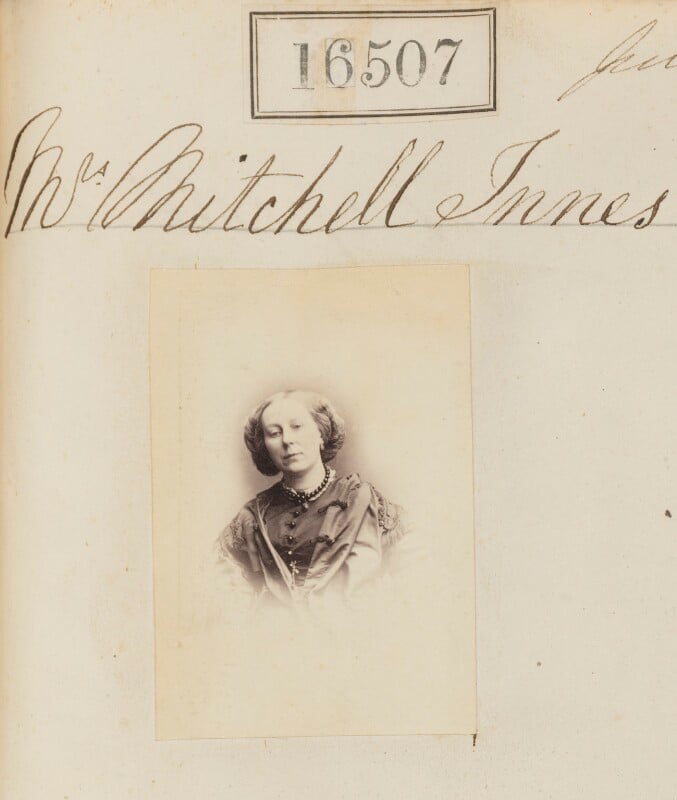 16507
Mrs Mitchell Innes